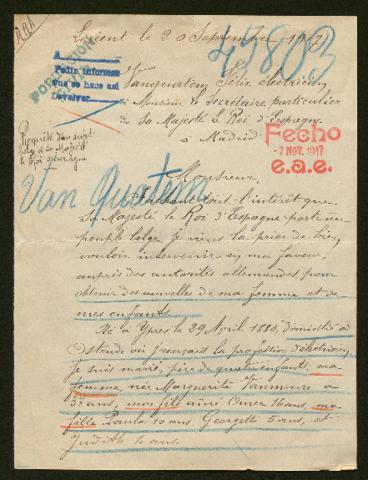 Lorient le 20 Septembre 1917
43803
A
Pedir informes
que se hace así
Devolver.
POBLACION
CIVIL
Vanquatem Félix électricien
à Monsieur le Secrétaire particulier
de Sa Majesté le Roi d'Espagne
à Madrid
Fecho
- 7 NOV. 1917
e.a.e.
Van Quatem
Monsieur,
Sachant tout l'intérêt que
Sa Majesté le Roi d'Espagne porte au
peuple belge je vous prie de bien
vouloir intervenir en ma faveur
auprès des autorités allemandes, pour
obtenir des nouvelles de ma femme et de
mes enfants.
Né à Ypres le 29 Avril 1880, domicilié à
Ostende où j'exerçais la profession d'électricien,
je suis marié, père de quatre enfants, ma
femme, née Marguerite a
37 ans, mon fils aîné 16 ans, ma
fille Paula 10 ans, Georgette 5 ans, et
Judith ans